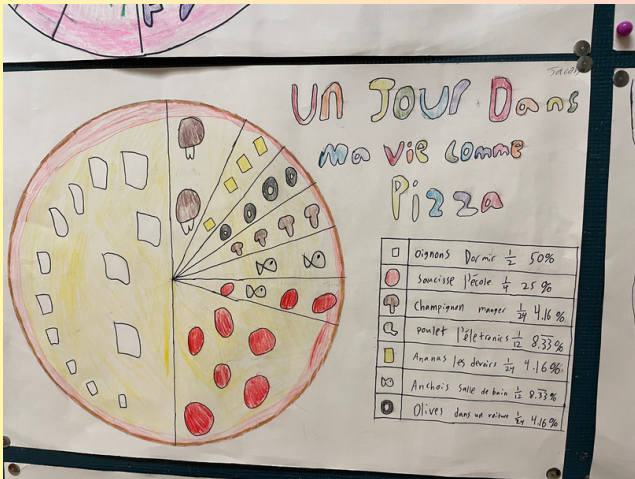 Jacob
Un Jour Dans
ma vie comme
Pizza
oignons Dormir 1/2 50%
Saucisse l'école 1/4 25%
Champignon manger 1/24 4.16%
poulet l'életronics 1/12 8.33%
Ananas les devoirs 1/24 4.16%
Anchois Salle de bain 1/12 8.33%
Olives dans un voiture 1/24 4.16%